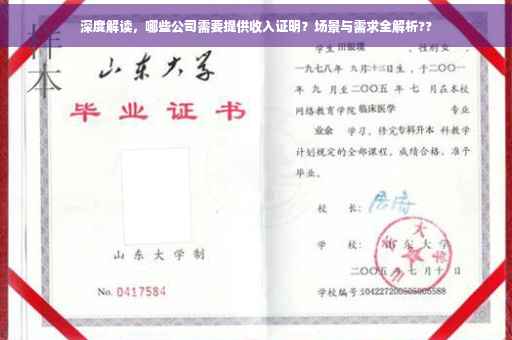 深度解读，哪些公司需要提供收入证明？场景与需求全解析??
样本
山东大学
毕业证书
山东大学制
No. 0417584
学生
性别女，
一九七八年 九月十三日生，于二〇〇一
年 九 月至二〇〇五 年 七 月在本校
网络教育学院 临床医学 专业
业余 学习，修完专科升本 科教学
计划规定的全部课程，成绩合格，准予
毕业。
校 长：
学 校： 山东大学
二〇〇五 年 七 月 十 日
学校编号: